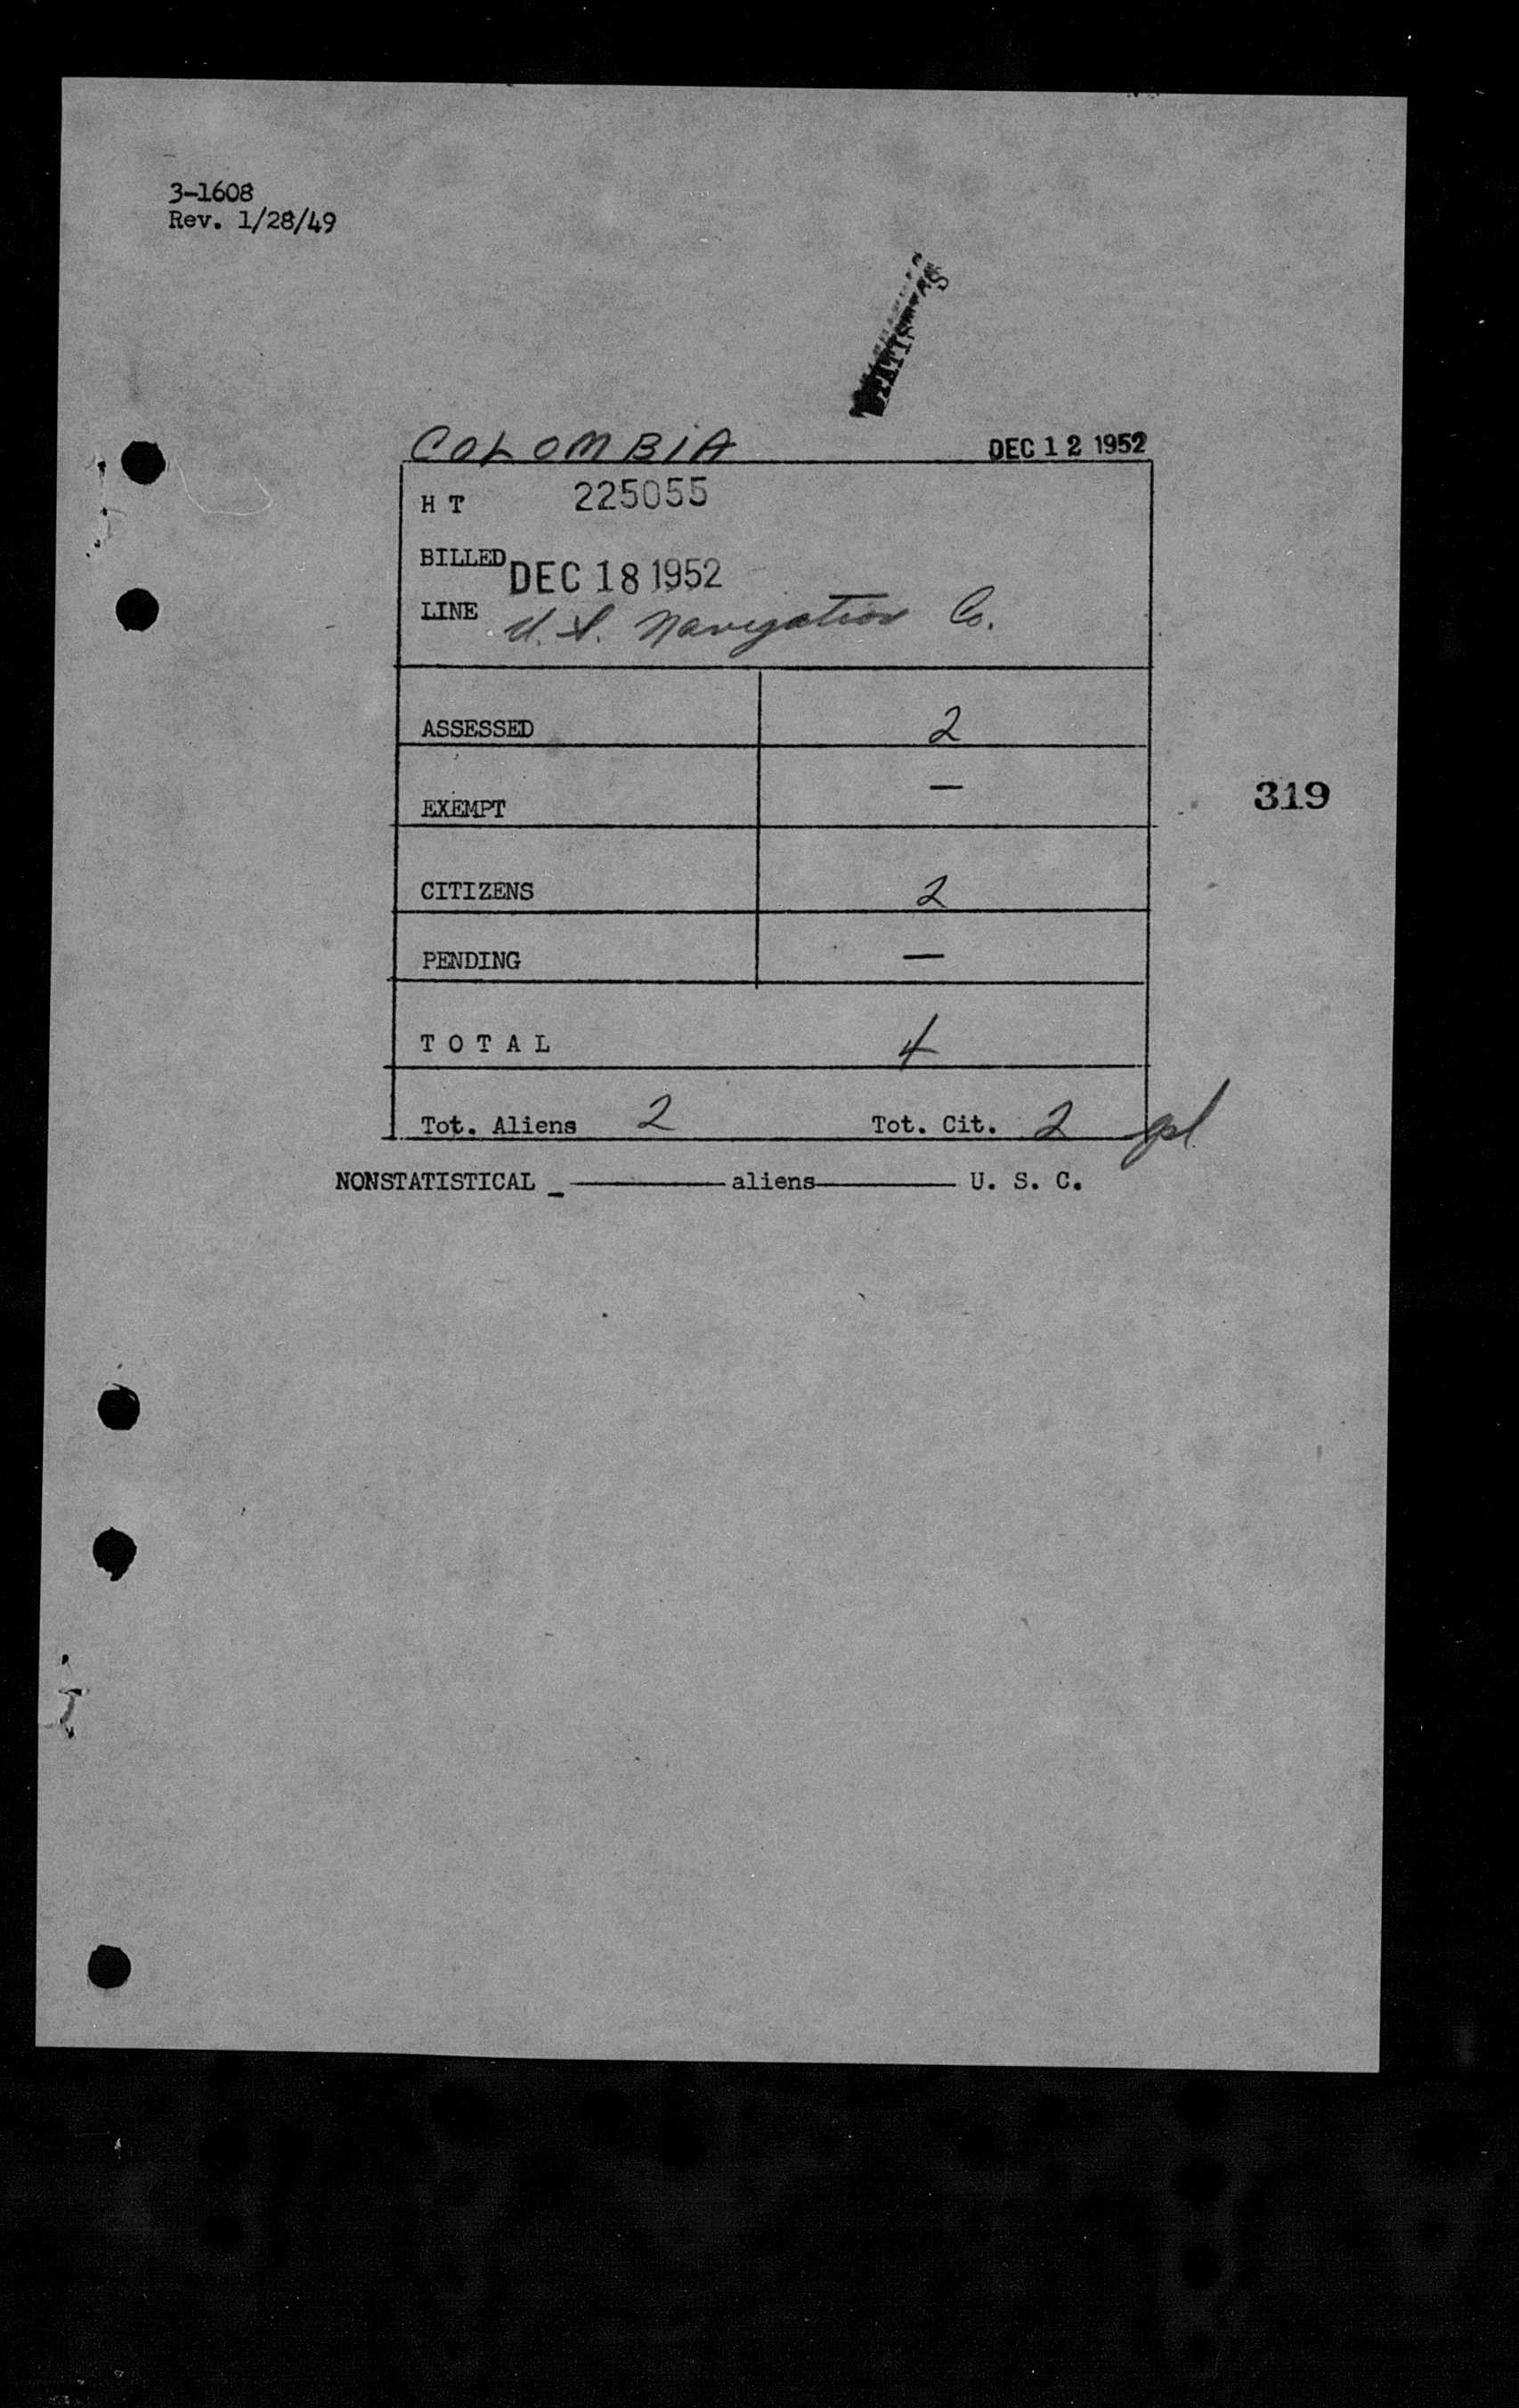 3-1608
Rev. 1/28/49
COLOMBIA DEC 12 1952
H T 225055
BILLED DEC 18 1952
LINE U.S. Navigation Co.
ASSESSED 2
EXEMPT —
319
CITIZENS 2
PENDING —
T O T A L 4
Tot. Aliens 2 Tot. Cit. 2
NONSTATISTICAL _ ———— aliens ———— U. S. C.